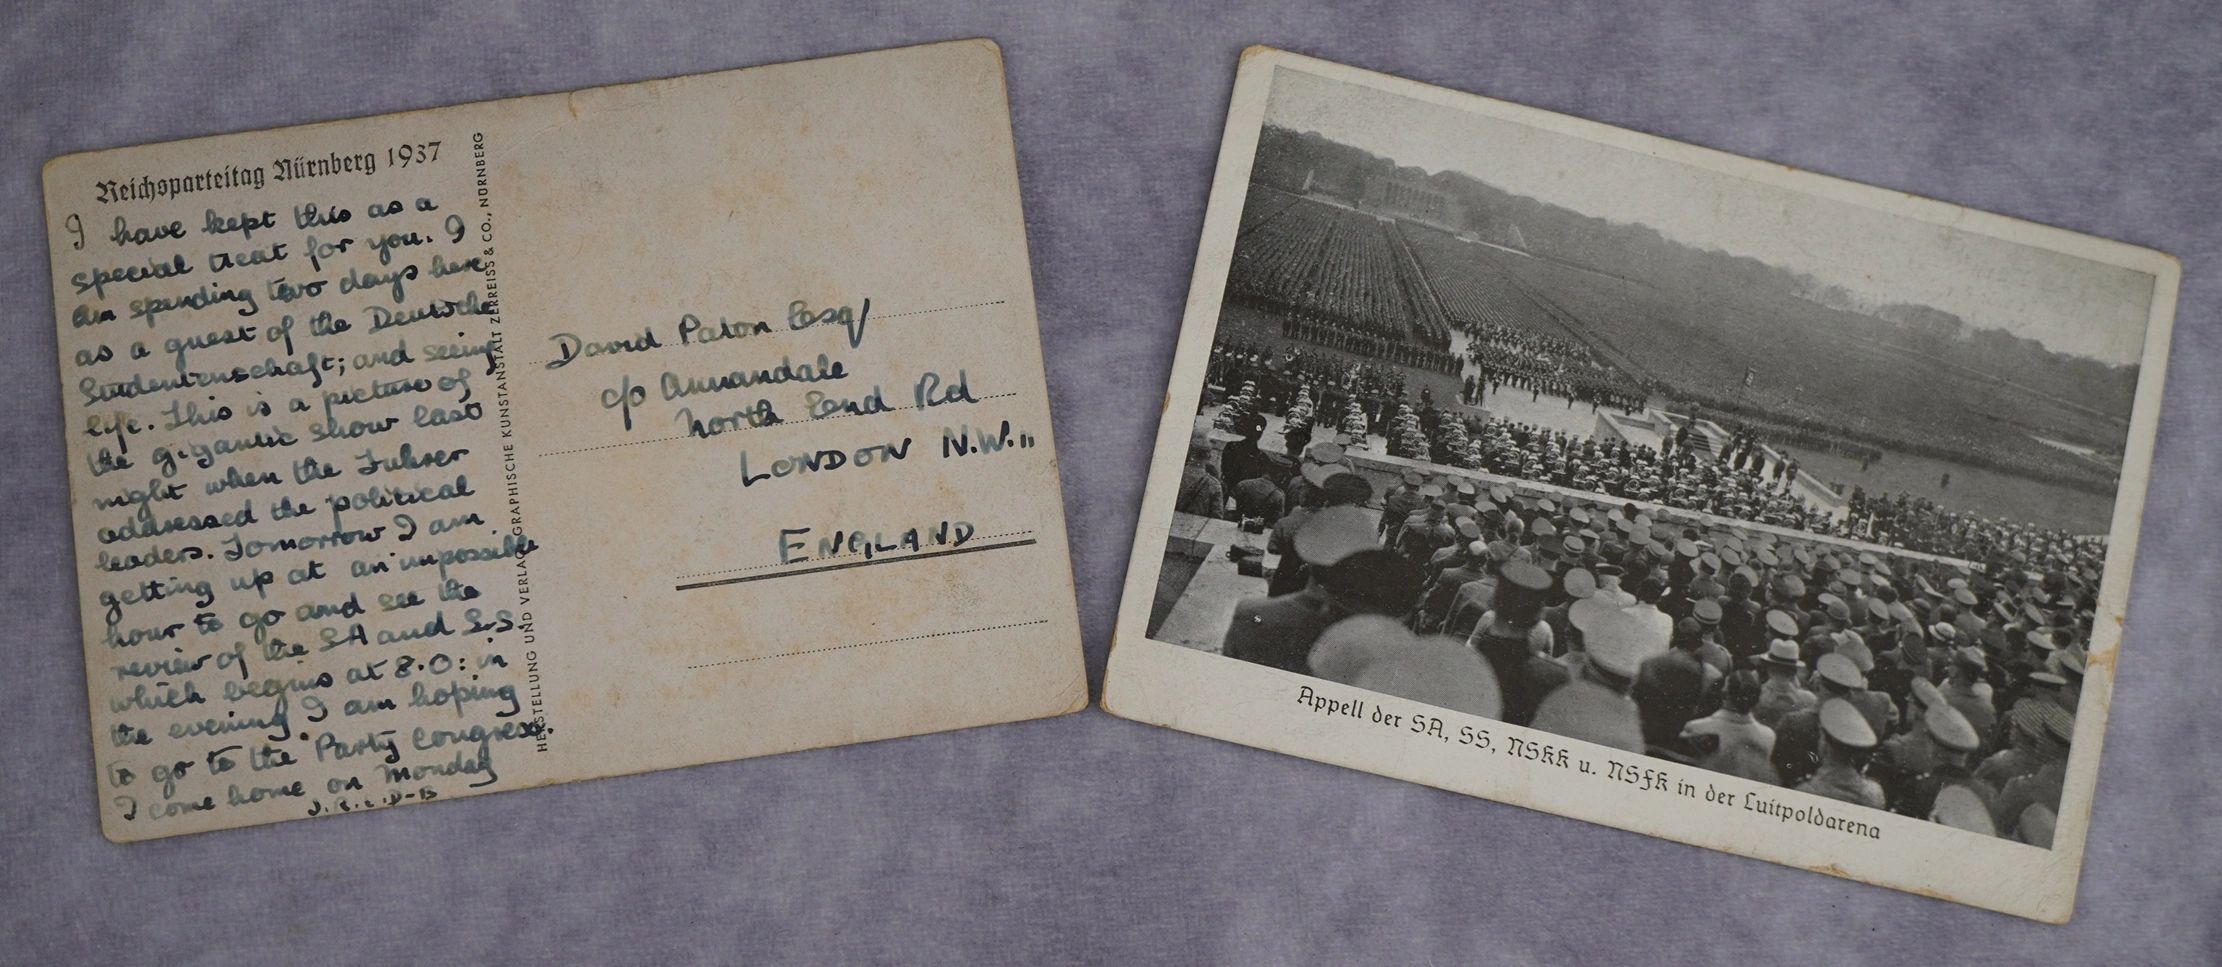 Reichsparteitag Nürnberg 1937
I have kept this as a
special treat for you. I
am spending two days here
as a guest of the Deutsche
Studentenschaft; and seeing
life. This is a picture of
the gigantic show last
night when the Fuhrer
addressed the political
leaders. Tomorrow I am
getting up at an impossible
hour to go and see the
review of the SA and S.S.
which begins at 8.0: in
the evening I am hoping
to go to the Party Congress.
I come home on Monday
J.R.L.D-B
HERSTELLUNG UND VERLAG GRAPHISCHE KUNSTANSTALT ZERREISS & CO., NÜRNBERG
David Paton Esq/
c/o Annandale
North End Rd
LONDON N.W.11
ENGLAND
Appell der SA, SS, NSKK u. NSFK in der Luitpoldarena